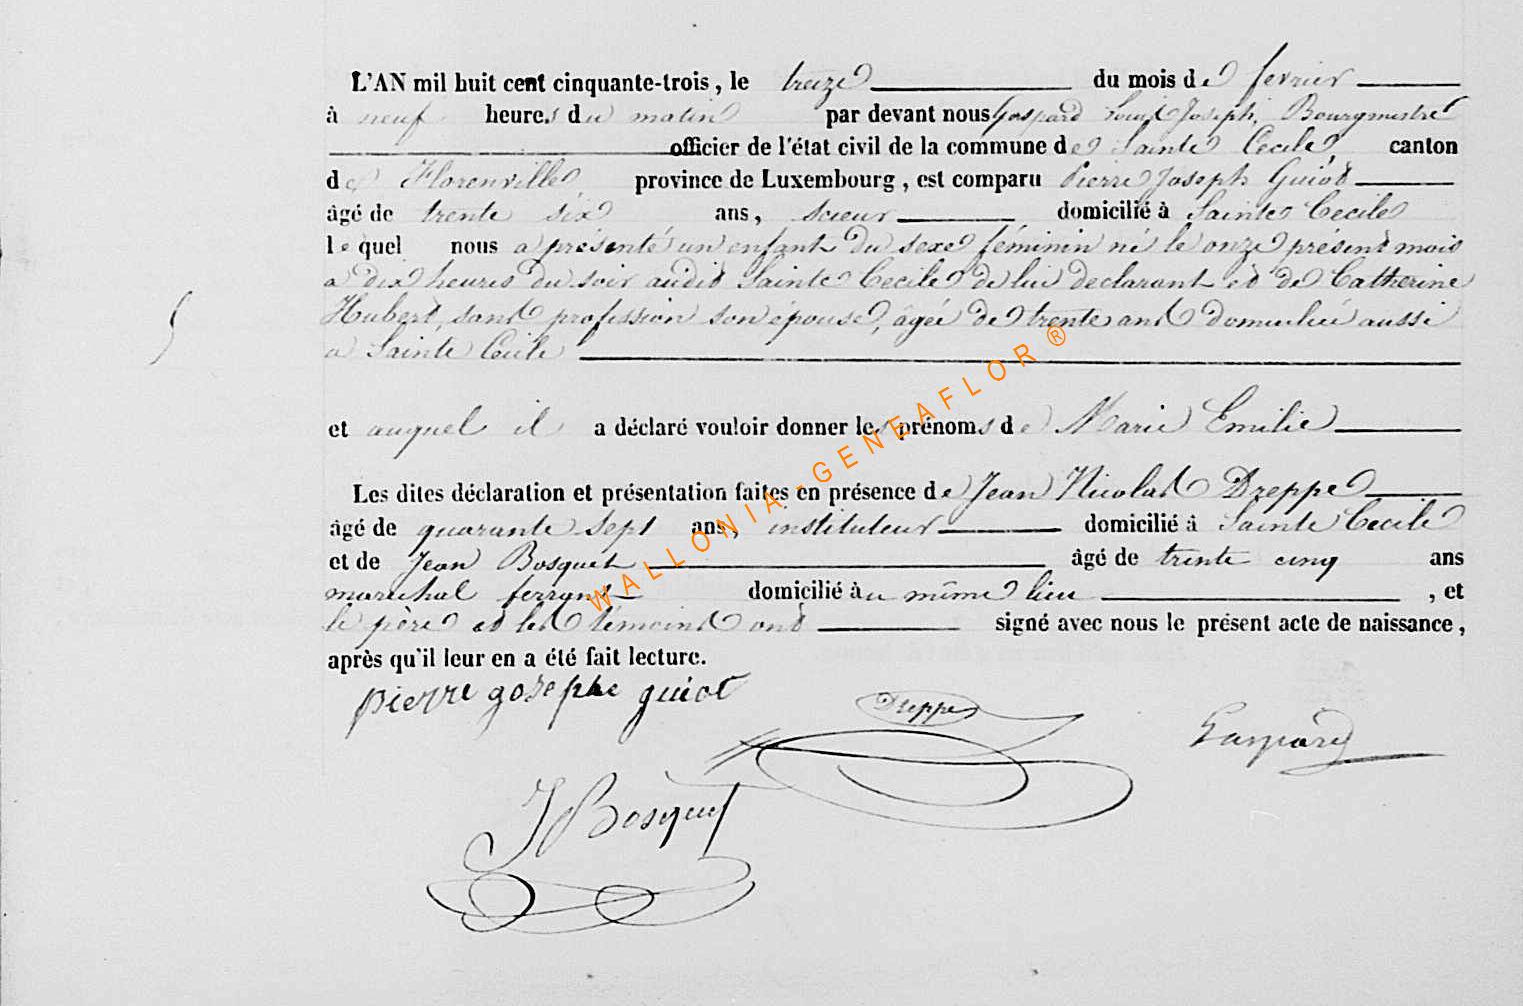 L'AN mil huit cent cinquante-trois, le treize du mois de fevrier
à neuf heures du matin par devant nous Gaspard Louis Joseph, Bourgmestre
officier de l'état civil de la commune de Sainte Cecile, canton
de Florenville, province de Luxembourg, est comparu Pierre Joseph Guiot
âgé de trente six ans, scieur domicilié à Sainte Cecile
lequel nous a présenté un enfant du sexe féminin né le onze présent mois
a dix heures du soir audit Sainte Cecile de lui declarant et de Catherine
Hubert, sans profession son épouse, âgée de trente ans domiciliée aussi
a Sainte Cecile
et auquel il a déclaré vouloir donner les prénoms de Marie Emilie
Les dites déclaration et présentation faites en présence de Jean Nicolas Dreppe
âgé de quarante sept ans, instituteur domicilié à Sainte Cecile
et de Jean Bosquet âgé de trente cinq ans
marechal ferrant domicilié au même lieu, et
le père et les témoins ont signé avec nous le présent acte de naissance,
après qu'il leur en a été fait lecture.
pierre gosephe guiot
Dreppe
Gaspard
J Bosquet
WALLONIA-GENEAFLOR ®